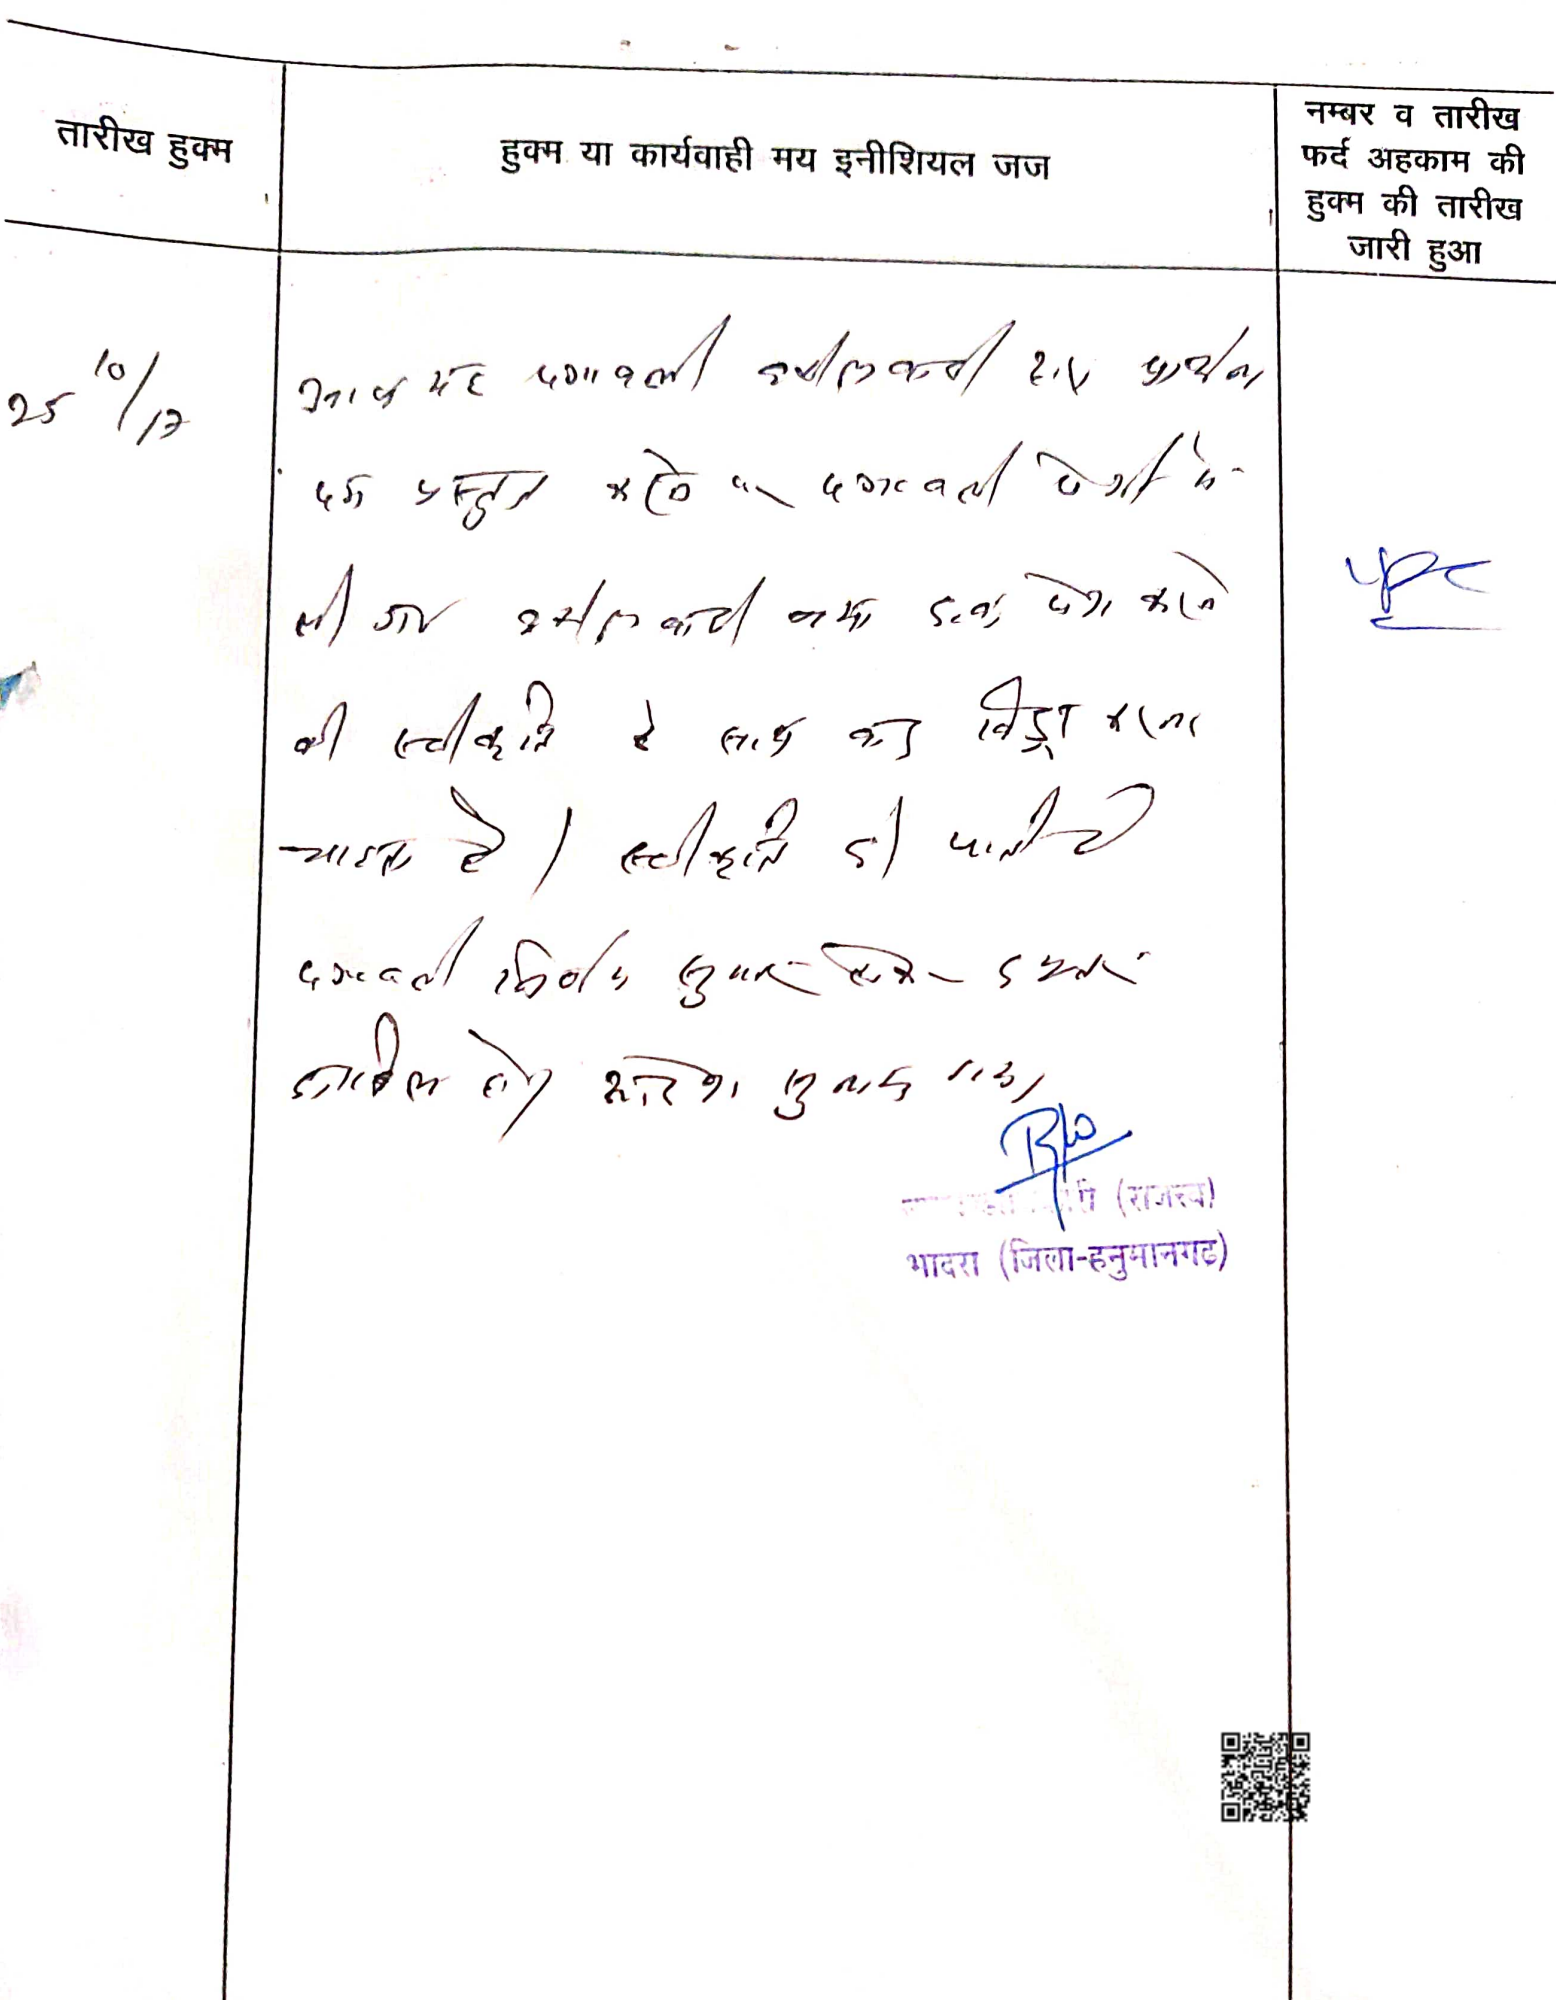 तारीख हुक्म
हुक्म या कार्यवाही मय इनीशियल जज
नम्बर व तारीख
फर्द अहकाम की
हुक्म की तारीख
जारी हुआ
25 10/17
आज यह पत्रावली अपीलार्थी द्वारा प्रार्थना
पत्र प्रस्तुत करने पर पत्रावली पेशी में
ली गई अपीलार्थी नया दावा पेश करने
की स्वीकृति के साथ वाद विड्रा करना
चाहता है। स्वीकृति दी जाती है
पत्रावली निर्णय शुमार होकर दफ्तर
दाखिल हो। आदेश सुनाया गया
(राजस्व)
भादरा (जिला-हनुमानगढ)